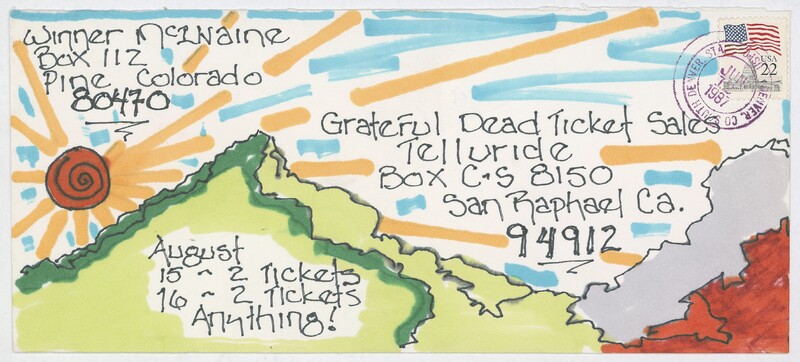 Winner McIlvaine
Box 112
Pine, Colorado
80470
USA
22
SOUTH DENVER STA
DENVER, CO
JUN
1987
Grateful Dead Ticket Sales
Telluride
Box C-S 8150
San Raphael Ca.
94912
August
15 ~ 2 Tickets
16 ~ 2 Tickets
Anything!